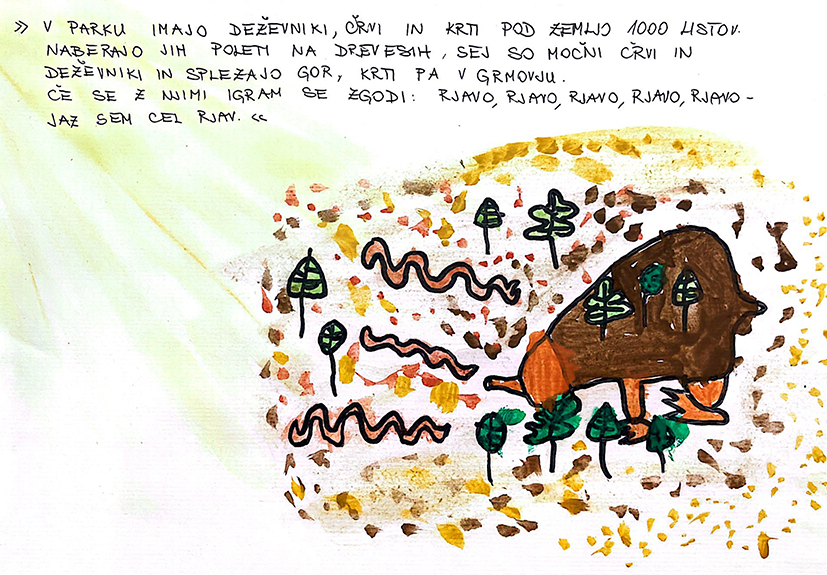 » V PARKU IMAJO DEŽEVNIKI, ČRVI IN KRTI POD ZEMLJO 1000 LISTOV.
NABERAJO JIH POLETI NA DREVESIH, SEJ SO MOČNI ČRVI IN
DEŽEVNIKI IN SPLEZAJO GOR, KRTI PA V GRMOVJU.
ČE SE Z NJIMI IGRAM SE ZGODI: RJAVO, RJAVO, RJAVO, RJAVO, RJAVO -
JAZ SEM CEL RJAV. «